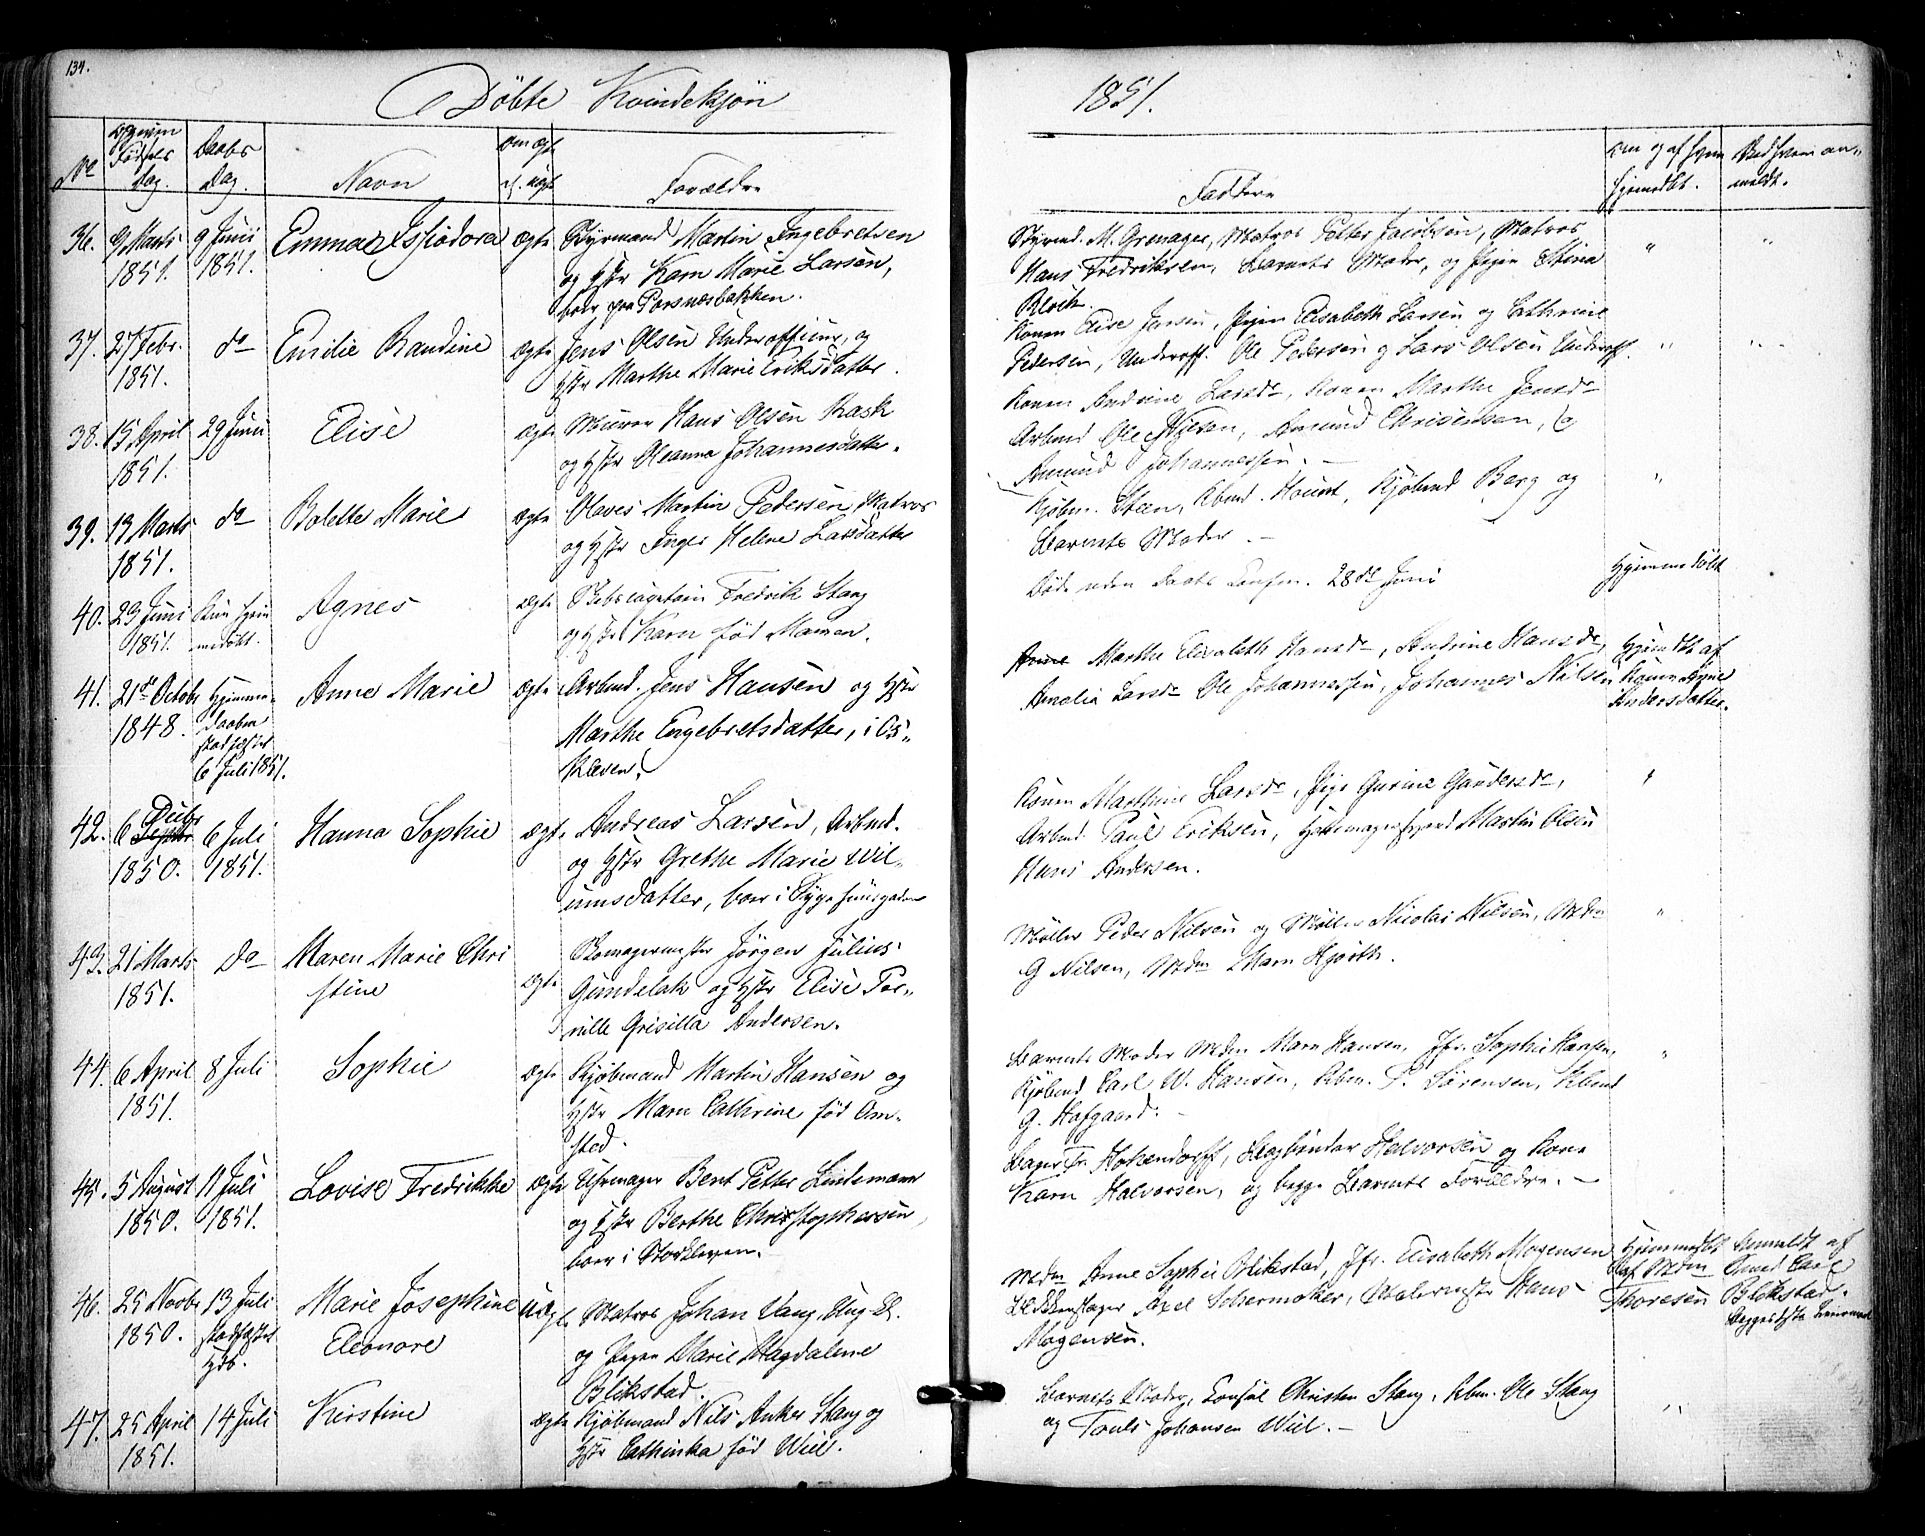 134.
Döbte Kvindekjön
1851.
No
Fødsels Dag.
Daabs Dag.
Navn
om ægte el. uægte
Forældre
Faddere
om og af hvem hjemedøbt.
Ved hvem anmeldt.
36. 9 Marts 1851. 9 Juni 1851. Emma Issidora ægte Styrmand Martin Ingebretsen
og Hstr Karn Marie Larsen,
boer paa Porsnæsbakken.
Styrmd. M. Grenager, Matros Petter Jacobsen, Matros
Hans Fredriksen, Barnets Moder, og Pigen Stina
Blich.
37. 27 Febr. 1851. do Emilie Randine ægte Jens Olsen Underofficeer, og
Hstr Marthe Marie Eriksdatter.
Konen Elise Jensen, Pigen Elisabeth Larsen og Cathrine
Pedersen, Underoff. Ole Pedersen og Lars Olsen Underoff.
38. 15 April 1851. 29 Juni Elise ægte Murer Hans Olsen Rask
og Hstr Oleanna Johannesdatter.
Konen Andrine Larsdr, Konen Marthe Jensdr
Arbmd Ole Nilsen, Amund Christensen, og
Amund Johannessen.
39. 13 Marts 1851. do Bolette Marie ægte Olaves Martin Pedersen, Matros
og Hstr Inger Helene Larsdatter
Kjøbm. Steen, Kbmd. Houmb, Kjöbmd Berg og
Barnets Moder.
40. 23 Juni 1851. Kun hjemmedöbt. Agnes ægte Skibscapitain Fredrik Stang
og Hstr Karn föd Mamen.
Døde uden Daabs Confirm. 28de Juni
Hjemmedöbt
41. 21de Octobr 1848. Hjemmedaaben stadfæstet 6 Juli 1851. Anne Marie ægte Arbmd. Jens Hansen og Hstr
Marthe Engebretsdatter, i Os-
kleven.
Marthe Elisabeth Hansdr, Andrine Hansdr,
Amalia Larsdr Ole Johannessen, Johannes Nilsen
Hjemdbt af Konen Anne Andersdatter.
42. 6 Decbr 1850. 6 Juli 1851. Hanna Sophie ægte Andreas Larsen, Arbmd.
og Hstr Grethe Marie Wil-
umsdatter, boer i
Konen Marthine Larsdr, Pige Gurine Gundersdr,
Arbmd Paul Eriksen, Hattemagersvend Martin Olsen
Hans Andersen.
43. 21 Marts 1851. do Maren Marie Chri
stine ægte Skomagermester Jörgen Julius
Gundelak og Hstr Elise Per-
nille Grisilla Andersen.
Møller Peder Nilsen og Møller Nicolai Nilsen, Mdm
G Nilsen, Mdm Marn Hjorth.
44. 6 April 1851. 8 Juli Sophie ægte Kjøbmand Martin Hansen og
Hstr Marn Cathrine föd Om-
sted.
Barnets Moder Mdm Marn Hansen, Jfr. Sophie Hansen,
Kjöbmd Carl W. Hansen, Kbm. P. Sørensen, Kbmd
G. Hafgaard.
45. 5 August 1850. 11 Juli 1851. Lovise Fredrikke ægte Uhrmager Bent Petter Lindemann
og Hstr Berthe Christophersen,
boer i Storkleven.
Bager Fr. Hohendorff, Bogbinder Halvorsen og Kone
Karn Halvorsen, og begge Barnets Forældre.
46. 25 Novbr 1850. 13 Juli stadfæstet Hdb. Marie Josephine
Eleonore uægte Matros Johan Vang, Ung K.
og Pigen Marie Magdalene
Blikstad.
Mdm Anne Sophie Blikstad, Jfr. Elisabeth Mogensen
Blikkenslager Axel Schermoker, Malermester Hans
Mogensen.
Hjemmedbt af Mdm Thoresen
Anmeldt af Carl Blikstad.
47. 25 April 1851. 14 Juli Kirstine ægte Kjöbmand Nils Anker Stang og
Hstr Cathinka föd Wiel.
Barnets Moder, Consul Christen Stang, Kbm. Ole Stang
og Fouls Johansen Wiel.